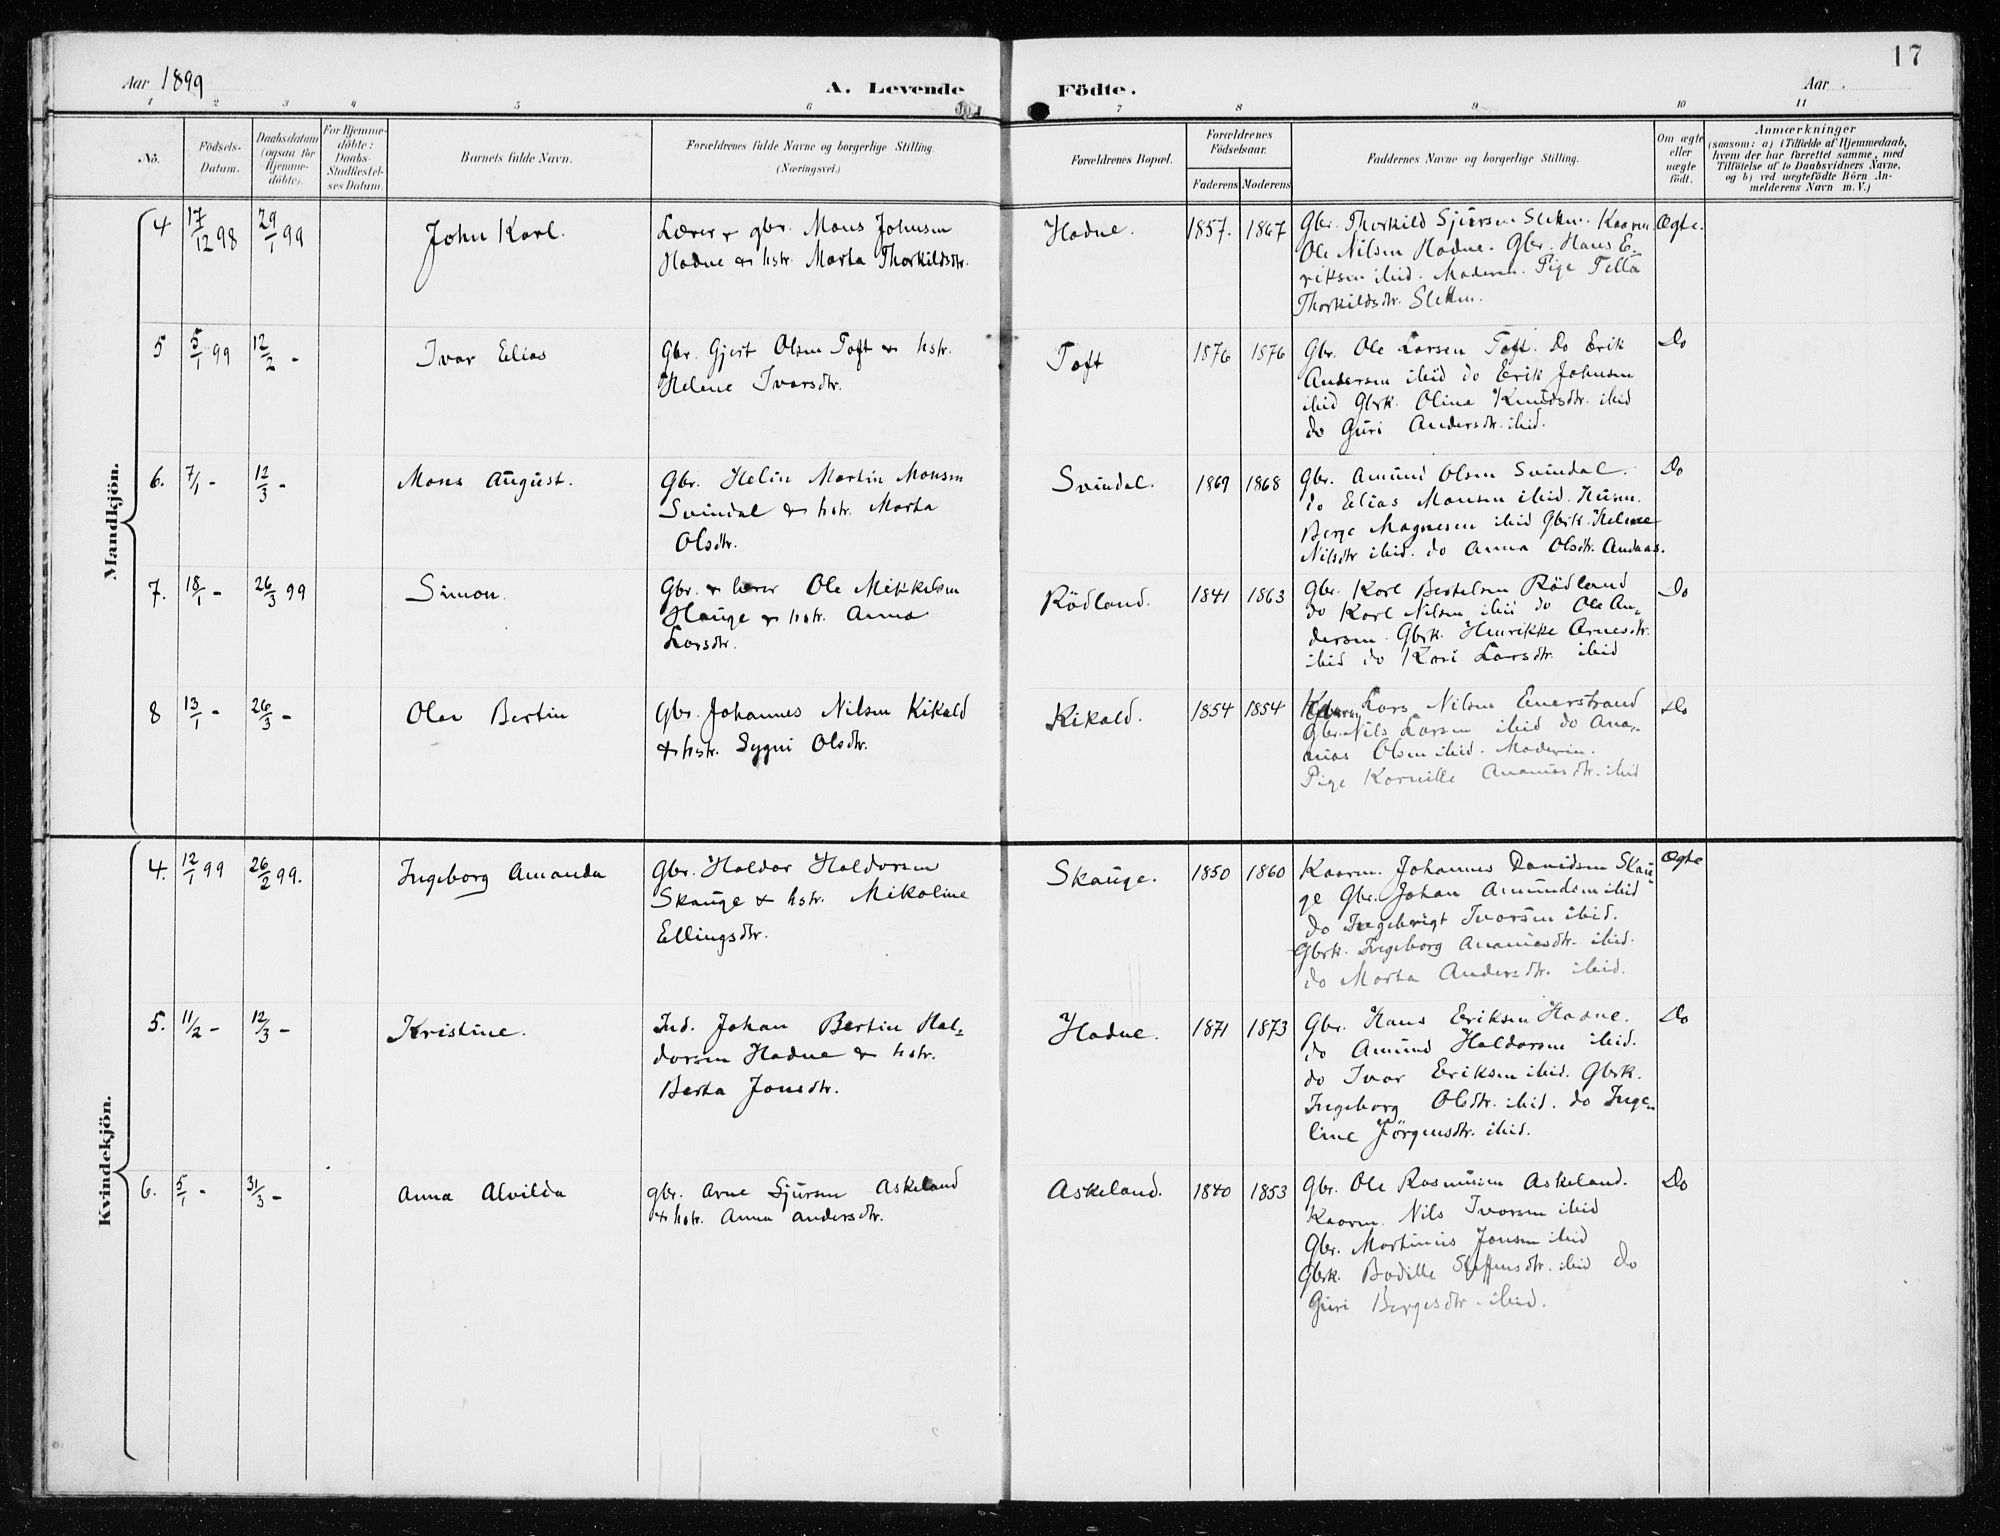 17
Aar 1899
A. Levende
Födte.
Aar
1 2 3 4 5 6 7 8 9 10 11
No.
Födsels-
Datum.
Daabsdatum
(ogsaa for
Hjemme-
döbte).
For Hjemme-
döbte:
Daabs-
Stadfæstel-
ses Datum.
Barnets fulde Navn.
Forældrenes fulde Navne og borgerlige Stilling.
(Næringsvei.)
Forældrenes Bopæl.
Forældrenes
Födselsaar.
Faderens Moderens
Faddernes Navne og borgerlige Stilling.
Om ægte
eller
uægte
födt.
Anmærkninger
(saasom: a) i Tilfælde af Hjemmedaab,
hvem der har forrettet samme, med
Tilföielse af to Daabsvidners Navne,
og b) ved uægtefödte Börn An-
melderens Navn m. V.)
Mandkjön.
4 17/12 98 29/1 99 John Karl.
Lærer & gbr. Mons Johnsen
Hadne & hstr. Marta Thorkildsdtr.
Hadne. 1857. 1867
Gbr. Thorkild Sjursen Kaarm.
Ole Nilsen Hadne. Gbr. Hans E-
riksen ibid. Moderen. Pige Tella
Thorkildsdtr.
Ægte.
5 5/1 99 12/2 - Ivar Elias
Gbr. Gjert Olsen Toft & hstr.
Helene Ivarsdtr.
Toft 1876 1876
Gbr. Ole Larsen Toft. Do Erik
Andersen ibid do Erik Johnsen
ibid Gbrk. Oline Knudsdtr. ibid
do Guri Andersdtr. ibid.
Do
6. 7/1 - 12/3 - Mons August.
Gbr. Helin Martin Monsen
Svindal & hstr. Marta
Olsdtr.
Svindal. 1869 1868
Gbr. Amund Olsen Svindal.
do Elias Monsen ibid. Husm.
Berge Magnesen ibid Gbrk. Helene
Nilsdtr ibid. do Anna Olsdtr. Andaas.
Do
7. 18/1 - 26/3 99 Simon.
Gbr. & lærer Ole Mikkelsen
Hauge & hstr. Anna
Larsdtr.
Rödland. 1841 1863
Gbr. Karl Bertelsen Rödland
do Karl Nilsen ibid do Ole An-
dersen. Gbrk. Henrikke Arnesdtr.
ibid do Kari Larsdtr. ibid
Do
8 13/1 - 26/3 - Olav Bertin
Gbr. Johannes Nilsen Kikald
& hstr. Sygni Olsdtr.
Kikald. 1854 1854
Lars Nilsen Enerstrand
Gbr. Nils Larsen ibid do Ana-
nias Olsen ibid. Moderen.
Pige Kornille Ananiasdtr. ibid
Do
Kvindekjön.
4. 12/1 99 26/2 99. Ingeborg Amanda
Gbr. Haldor Haldorsen
Skauge & hstr. Mikoline
Ellingsdtr.
Skauge. 1850 1860
Kaarm. Johannes Davidsen Skau-
ge Gbr. Johan Amundsen ibid
do Ingebrigt Ivarsen ibid.
Gbrk. Ingeborg Ananiasdtr. ibid.
do Marta Andersdtr. ibid.
Ægte
5. 11/2 - 12/3 - Kristine.
Ind. Johan Bertin Hal-
dorsen Hadne & hstr.
Berta Jonsdtr.
Hadne. 1871 1873
Gbr. Hans Eriksen Hadne.
do Amund Haldorsen ibid.
do Ivar Eriksen ibid. Gbrk.
Ingeborg Olsdtr. ibid. do Inge-
line Jörgensdtr. ibid.
Do
6. 5/1 - 31/3 - Anna Alvilda
gbr. Arne Sjursen Askeland
& hstr. Anna Andersdtr.
Askeland. 1840 1853
Gbr. Ole Rasmusen Askeland.
Kaarm. Nils Ivarsen ibid
Gbr. Martinus Jonsen ibid
Gbrk. Bodille Steffensdtr. ibid do
Guri Bergesdtr. ibid.
Do